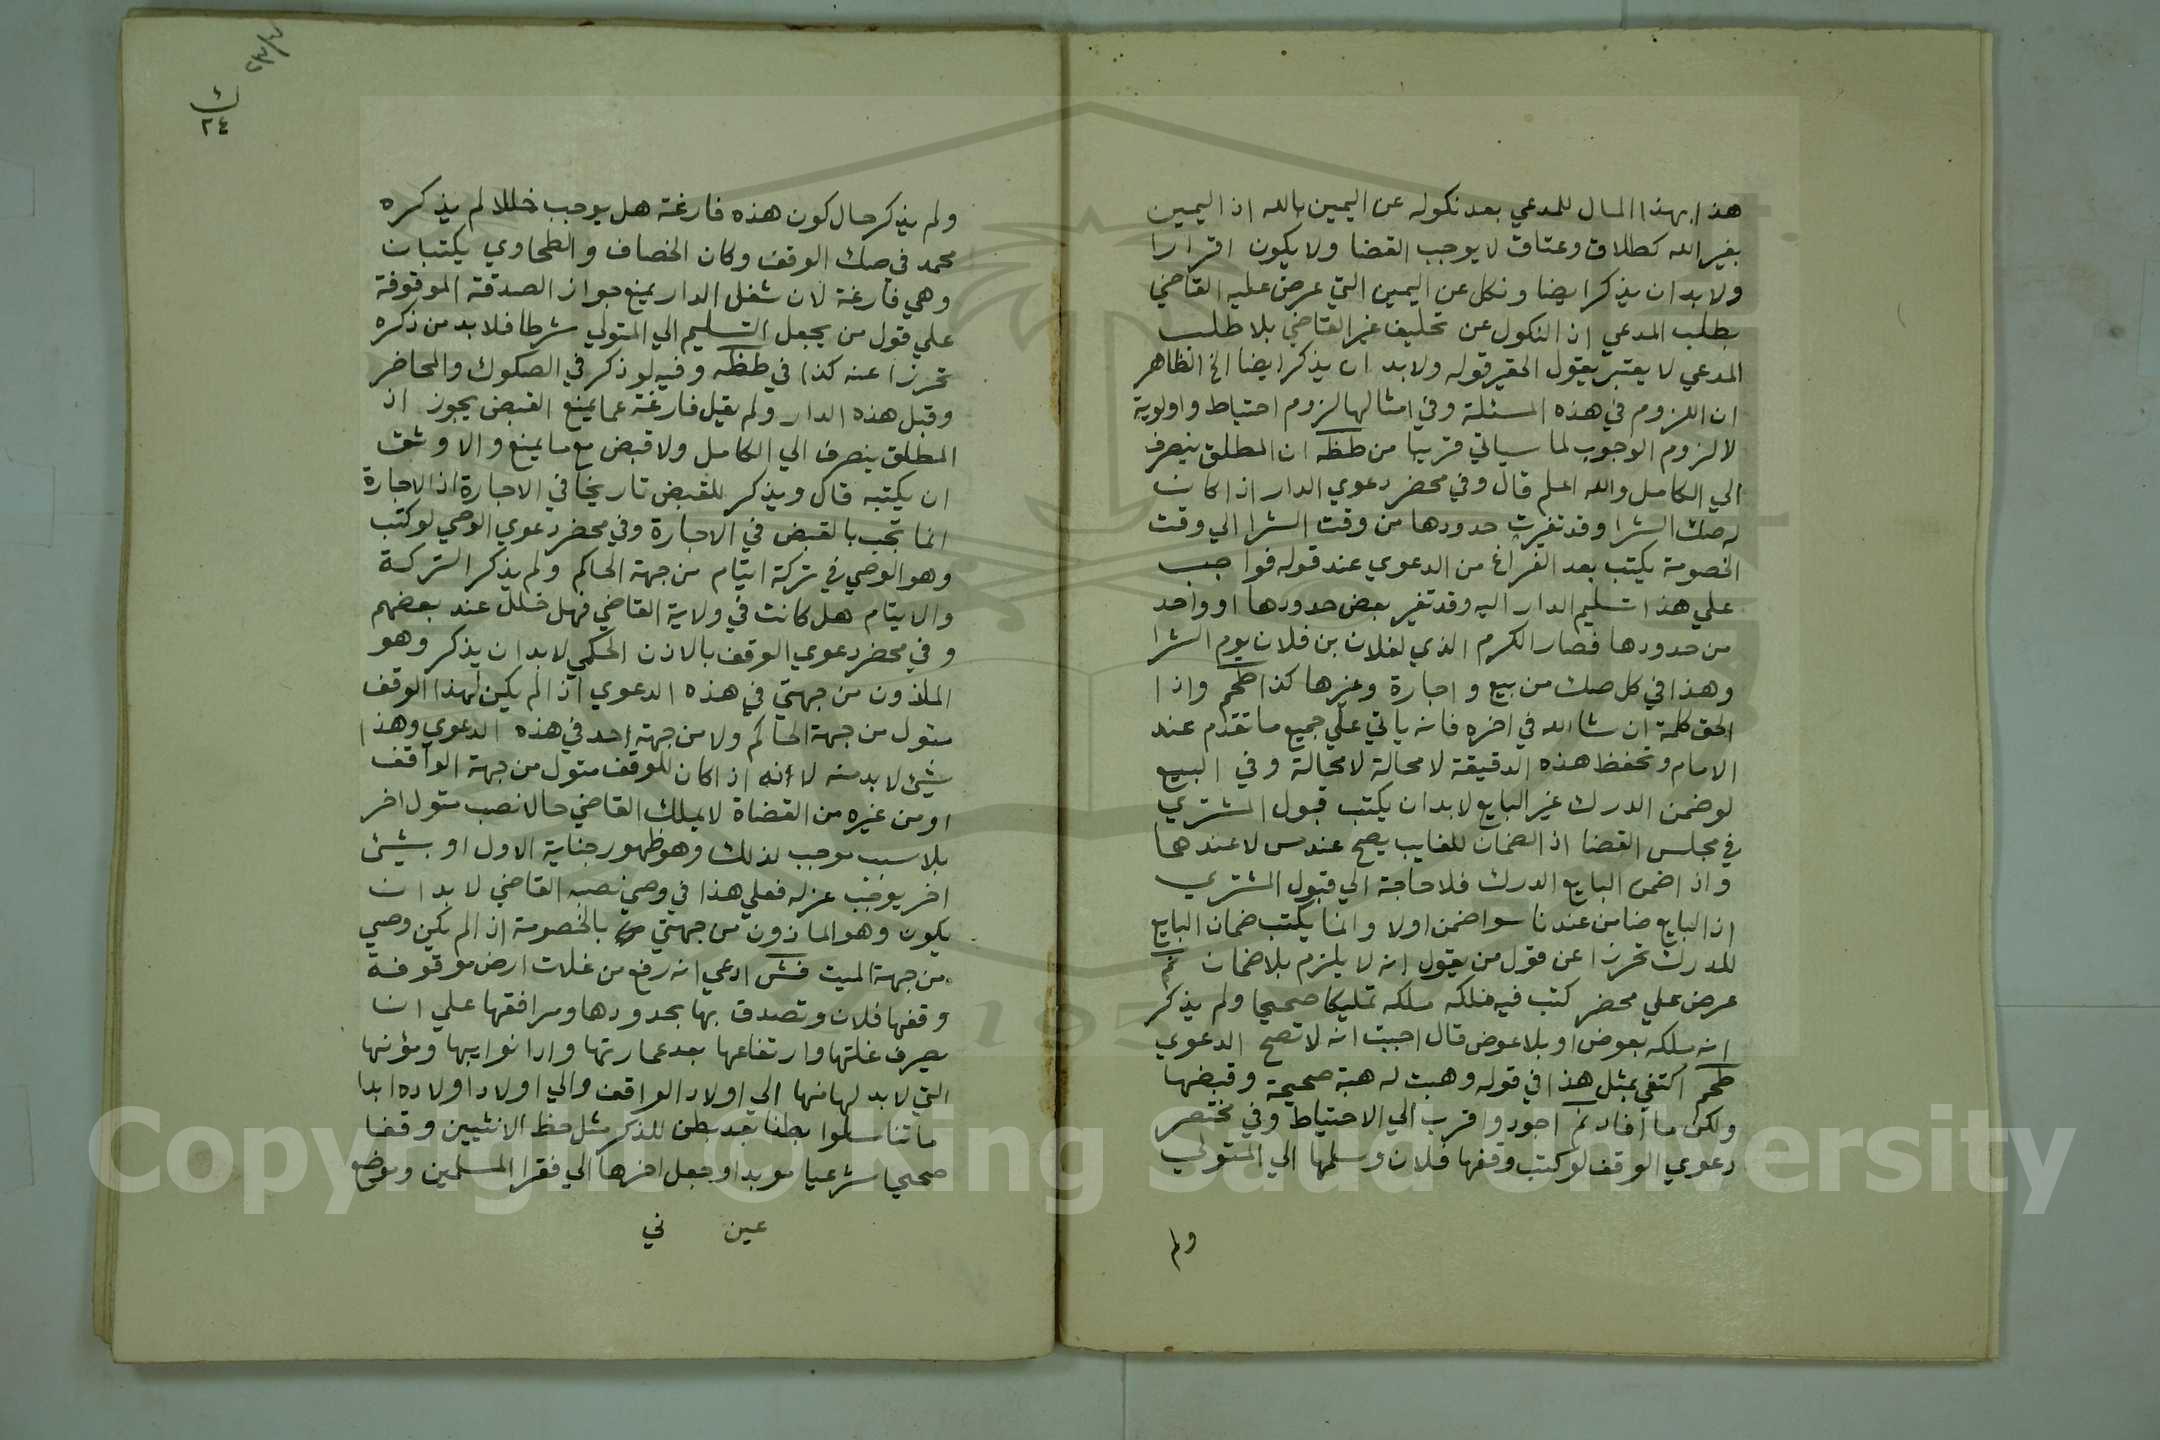 هذا بهذا المال للمدعي بعد نكوله عن اليمين بالله اذ اليمين
بغير الله كطلاق وعتاق لا يوجب القضا ولا يكون اقرارا
ولا بد ان يذكر ايضا ونكل عن اليمين التي عرض عليه القاضي
بطلب المدعي اذ النكول عن تحليف غير القاضي بلا طلب
المدعي لا يعتبر يقول الحقير قوله ولا بد ان يذكر ايضا الخ الظاهر
ان اللزوم في هذه المسئلة وفي امثالها لزوم احتياط واولوية
لا لزوم الوجوب لما سياتي قريبا من طظه ان المطلق ينصرف
الي الكامل والله اعلم قال وفي محضر دعوي الدار اذا كان
له صك الشرا وقد تغيرت حدودها من وقت الشرا الي وقت
الخصومة يكتب بعد الفراغ من الدعوي عند قوله فواجب
علي هذا تسليم الدار اليه وقد تغير بعض حدودها او واحد
من حدودها فصار الكرم الذي لفلان بن فلان يوم الشرا
وهذا في كل صك من بيع واجارة وغيرها كذا طحم واذا
الحق كلمة ان شا الله في اخره فانه ياتي علي جميع ما تقدم عند
الامام وتحفظ هذه الدقيقة لا محالة لا محالة وفي البيع
لو ضمن الدرك غير البايع لا بد ان يكتب قبول المشتري
في مجلس القضا اذ الضمان للغايب يصح عند س لا عندهما
واذا ضمن البايع الدرك فلا حاجة الي قبول المشتري
اذ البايع ضامن عندنا سوا ضمن اولا وانما يكتب ضمان البايع
للدرك تحرزا عن قول من يقول انه لا يلزم بلا ضمان نم
عرض علي محضر كتب فيه ملكه تمليكا صحيحا ولم يذكر
انه ملكه بعوض او بلا عوض قال اجبت انه لا تصح الدعوي
طحم اكتفي بمثل هذا في قوله وهبت له هبة صحيحة وقبضها
ولكن ما افاد نم اجود واقرب الي الاحتياط وفي مختصر
دعوي الوقف لو كتب وقفها فلان وسلمها الي المتولي
ولم
٢٤
ولم يذكر حال كون هذه فارغة هل يوجب خللا لم يذكره
محمد في صك الوقف وكان الخصاف والطحاوي يكتبان
وهي فارغة لان شغل الدار يمنع جواز الصدقة الموقوفة
علي قول من يجعل التسليم الي المتولي شرطا فلا بد من ذكره
تحرزا عنه كذا في طظه وفيه لو ذكر في الصكوك والمحاضر
وقبل هذه الدار ولم يقل فارغة عما يمنع القبض يجوز اذ
المطلق ينصرف الي الكامل ولا قبض مع ما يمنع والاوثق
ان يكتبه قال ويذكر للقبض تاريخا في الاجارة اذ الاجارة
انما تجب بالقبض في الاجارة وفي محضر دعوي الوصي لو كتب
وهو الوصي في تركة ايتام من جهة الحاكم ولم يذكر التركة
والايتام هل كانت في ولاية القاضي فهل خلل عند بعضهم
وفي محضر دعوي الوقف بالاذن الحكمي لا بد ان يذكر وهو
الماذون من جهتي في هذه الدعوي اذا لم يكن لهذا الوقف
متول من جهة الحاكم ولا من جهة احد في هذه الدعوي وهذا
شيئ لا بد منه لانه اذا كان للوقف متول من جهة الواقف
او من غيره من القضاة لا يملك القاضي حالا نصب متول اخر
بلا سبب موجب لذلك وهو ظهور جناية الاول او بشيئ
اخر يوجب عزله فعلي هذا في وصي نصبه القاضي لا بد ان
يكون وهو الماذون من جهتي بالخصومة اذا لم يكن وصي
من جهة الميت فش ادعي انه رفع من غلات ارض موقوفة
وقفها فلان وتصدق بها بحدودها ومرافقها علي ان
يصرف غلتها وارتفاعها بعد عمارتها وادا نوايبها ومؤنها
التي لا بد لها منها الي اولاد الواقف والي اولاد اولاده ابدا
ما تناسلوا بطنا بعد بطن للذكر مثل حظ الانثيين وقفا
صحيحا شرعيا موبدا وجعل اخرها الي فقرا المسلمين وموضع
عين في
Copyright © King Saud University